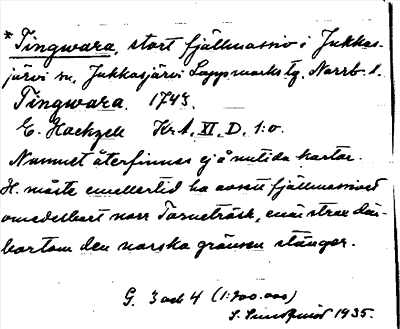 *Tingwara, stort fjällmassiv i Jukkas-
järvi sn, Jukkasjärvi Lappmarks tg, Norrb. l.
Tingwara. 1743.
E. Hackzell Krt. XI, D, 1:0.
Namnet återfinnes ej å nutida kartor.
H. måste emellertid ha avsett fjällmassivet
omedelbart norr Torneträsk, enär strax där-
bortom den norska gränsen stänger.
G. 3 och 4 (1:200.000)
S. Lindquist 1935.